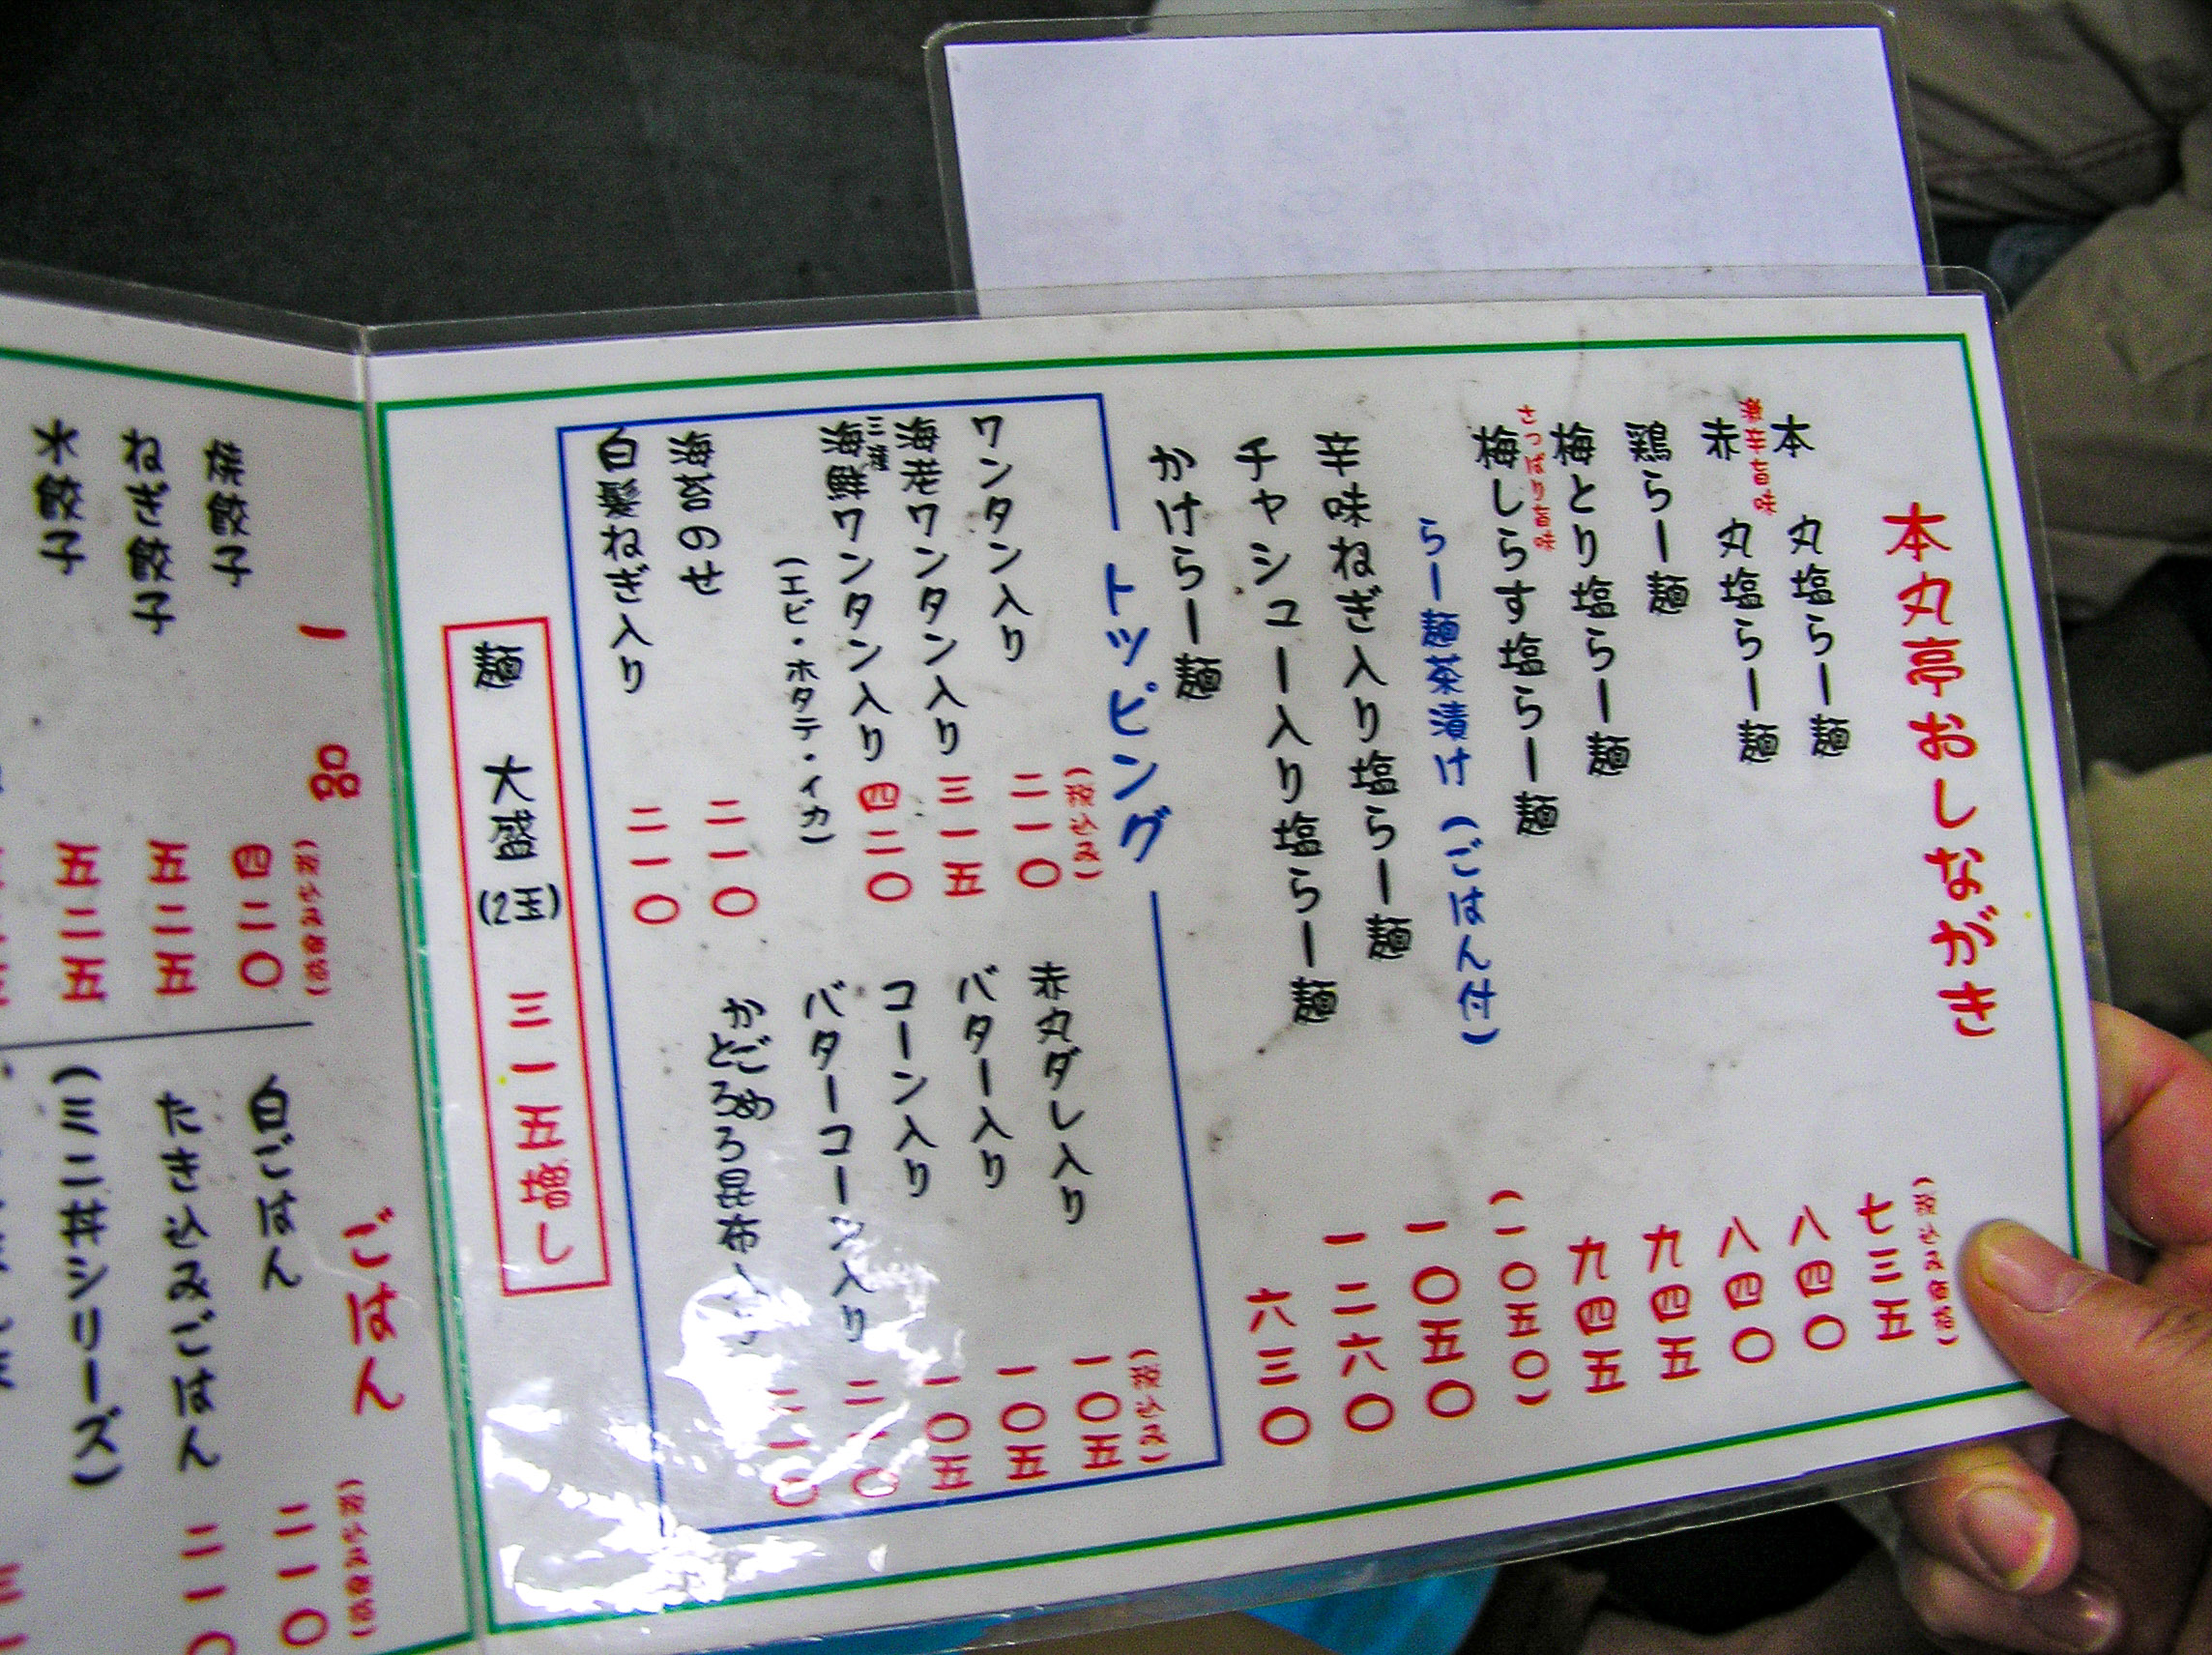 本丸亭おしながき
(税込み価格)
本 丸塩らー麺 七三五
楽辛旨味
赤 丸塩らー麺 八四〇
鶏らー麺 八四〇
梅とり塩らー麺 九四五
さっぱり旨味
梅しらす塩らー麺 九四五
らー麺茶漬け(ごはん付) (一〇五〇)
辛味ねぎ入り塩らー麺 一〇五〇
チャシュー入り塩らー麺 一二六〇
かけらー麺 六三〇
トッピング
(税込み)
ワンタン入り 二一〇
海老ワンタン入り 三一五
三種
海鮮ワンタン入り 四二〇
(エビ・ホタテ・イカ)
海苔のせ 二一〇
白髪ねぎ入り 二一〇
(税込み)
赤丸ダレ入り 一〇五
バター入り 一〇五
コーン入り 一〇五
バターコーン入り 二一〇
かごめ
とろろ昆布 二一〇
麺 大盛(2玉) 三一五増し
一品
(税込み価格)
焼餃子 四二〇
ねぎ餃子 五二五
水餃子 五二五
ごはん
(税込み価格)
白ごはん 二一〇
たき込みごはん 二一〇
(ミニ丼シリーズ)